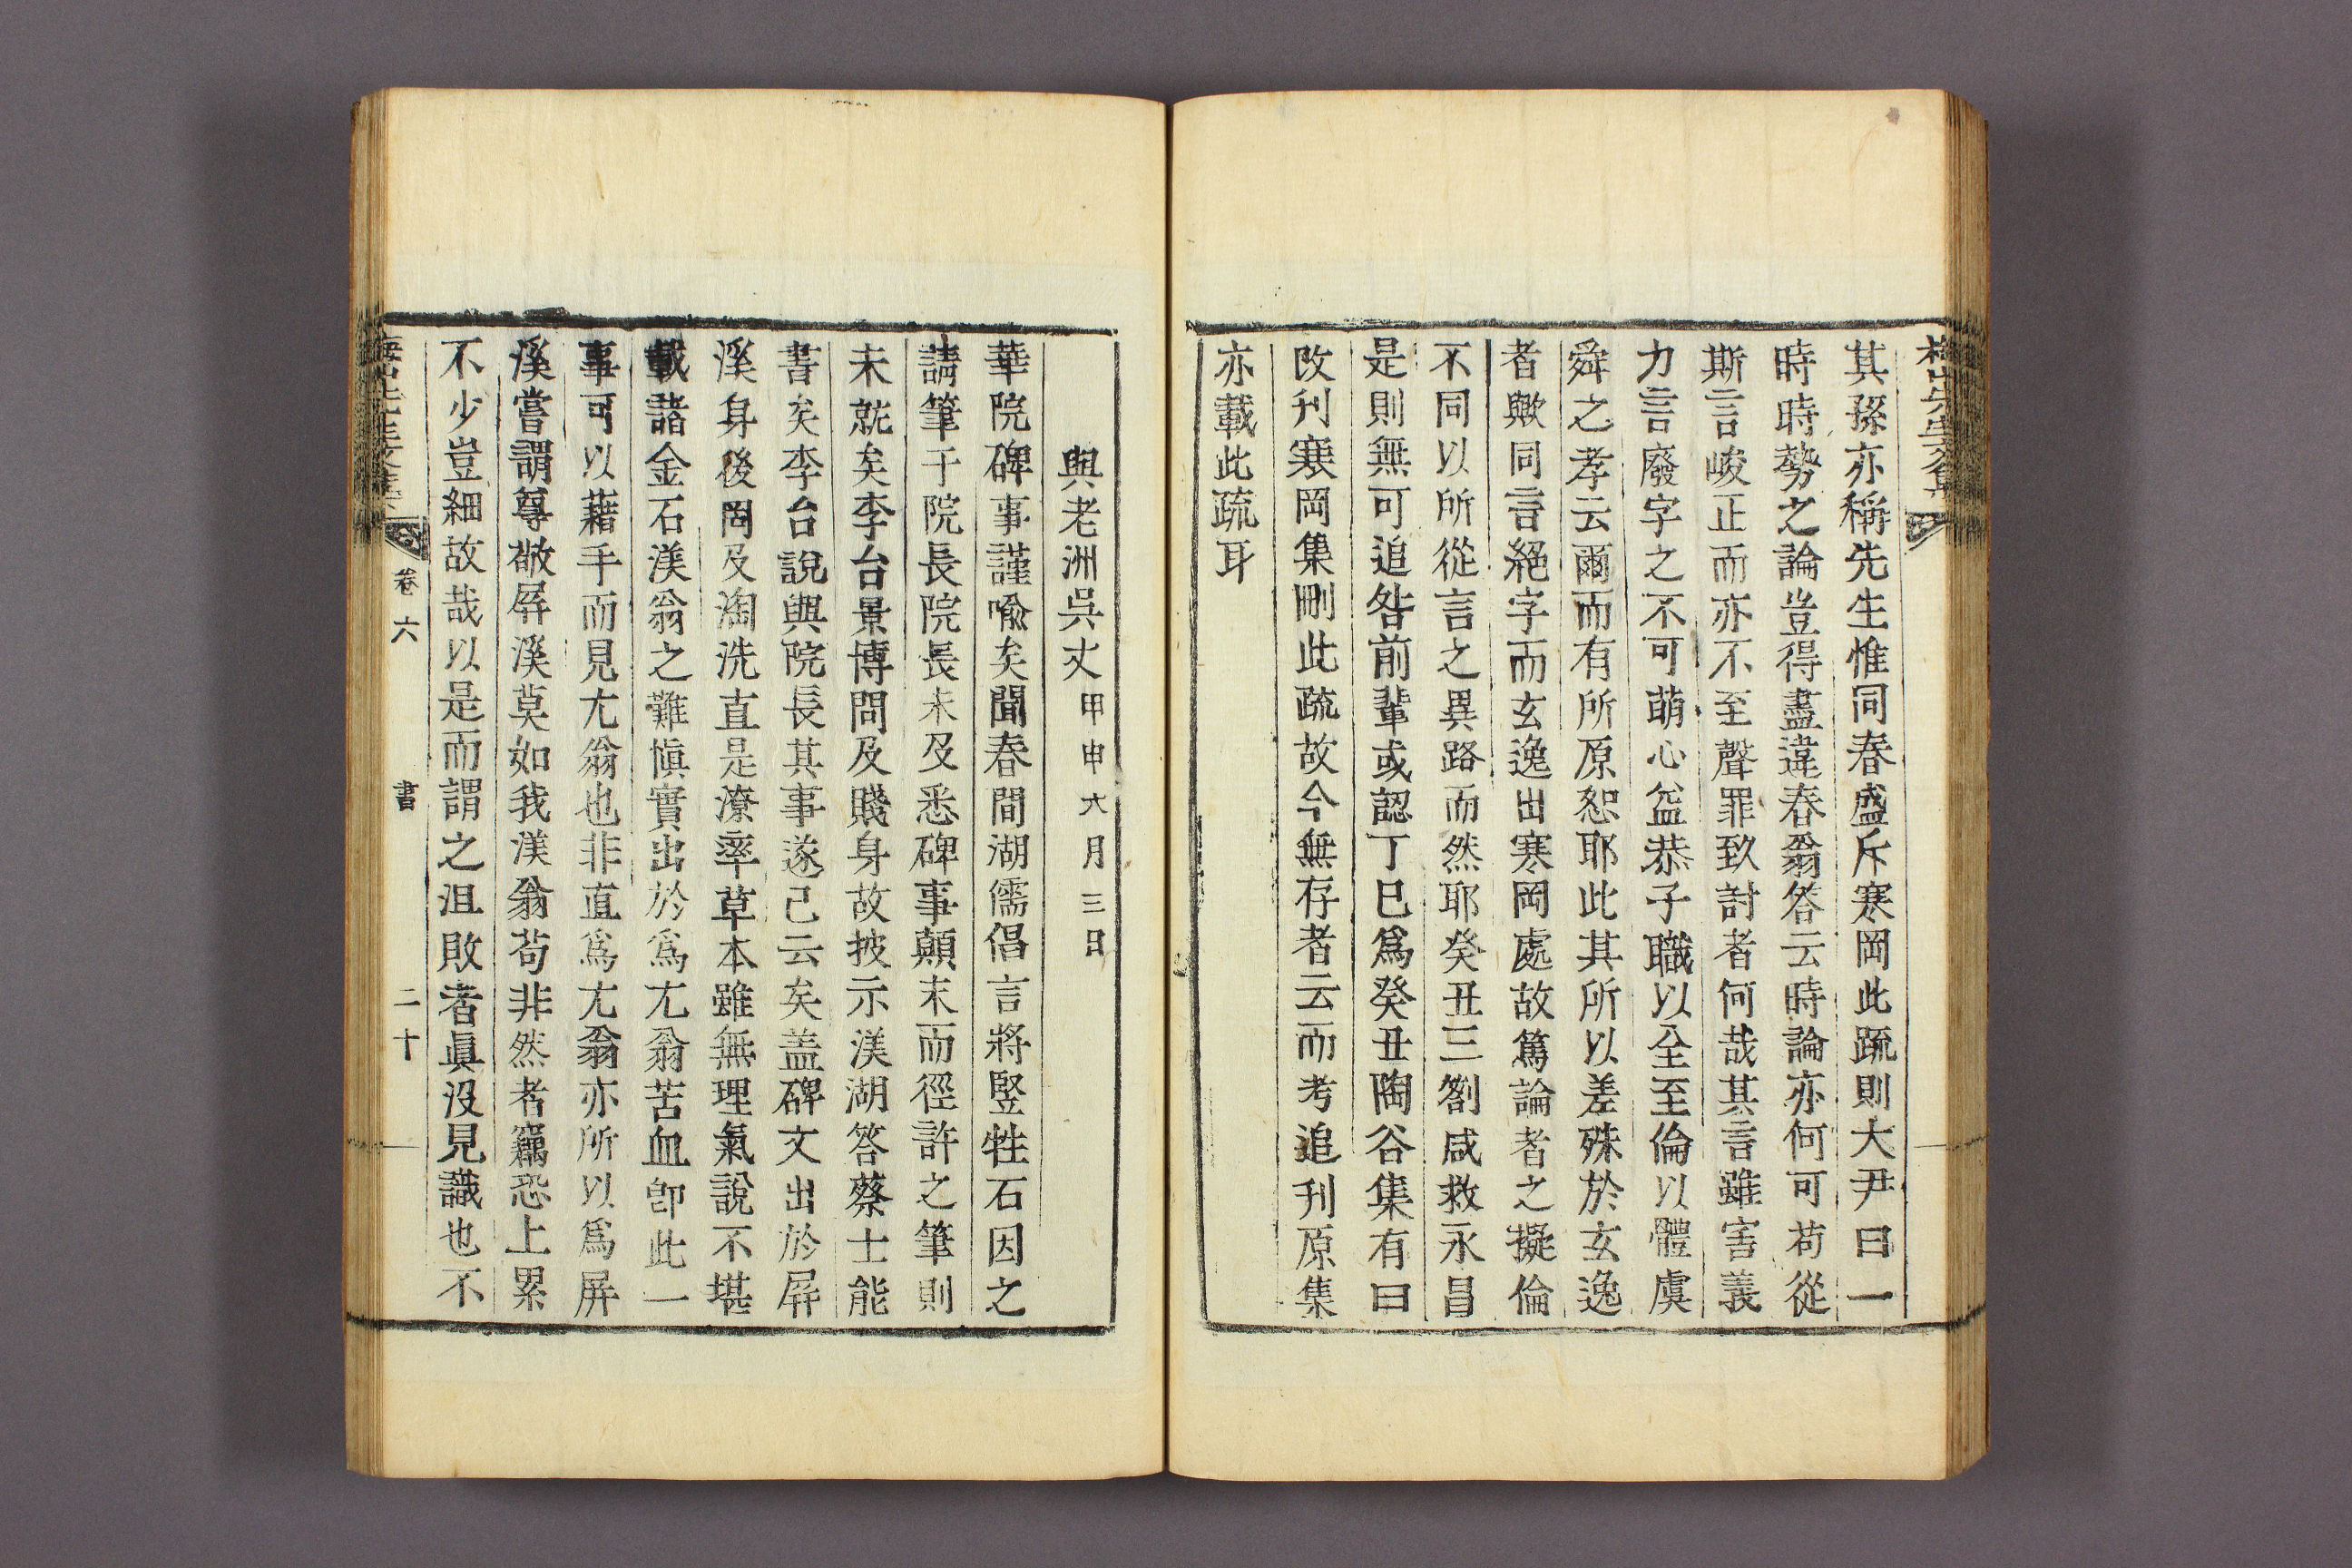 梅山先生文集
其孫亦稱先生惟同春盛斥寒岡此疏則大尹曰一
時時勢之論豈得盡違春翁答云時論亦何可苟從
斯言峻正而亦不至聲罪致討者何哉其言雖害義
力言廢字之不可萌心盆恭子職以全至倫以體虞
舜之孝云爾而有所原恕耶此其所以差殊於玄逸
者歟同言絕字而玄逸出寒岡處故篤論者之擬倫
不同以所從言之異路而然耶癸丑三劄咸救永昌
是則無可追咎前輩或認丁巳爲癸丑陶谷集有曰
改刋寒岡集刪此疏故今無存者云而考追刋原集
亦載此疏耳
與老洲吳丈甲申六月三日
華院碑事謹喩矣聞春間湖儒倡言將竪牲石因之
請筆于院長院長未及悉碑事顚末而徑許之筆則
未就矣李台景博問及賤身故披示渼湖答蔡士能
書矣李台說與院長其事遂已云矣盖碑文出於屛
溪身後岡及淘洗直是潦率草本雖無理氣說不堪
載諸金石渼翁之難愼實出於爲尤翁苦血卽此一
事可以藉手而見尤翁也非直爲尤翁亦所以爲屛
溪嘗謂尊敬屛溪莫如我渼翁苟非然者竊恐上累
不少豈細故哉以是而謂之沮敗者眞沒見識也不
梅山先生文集 卷六 書 二十